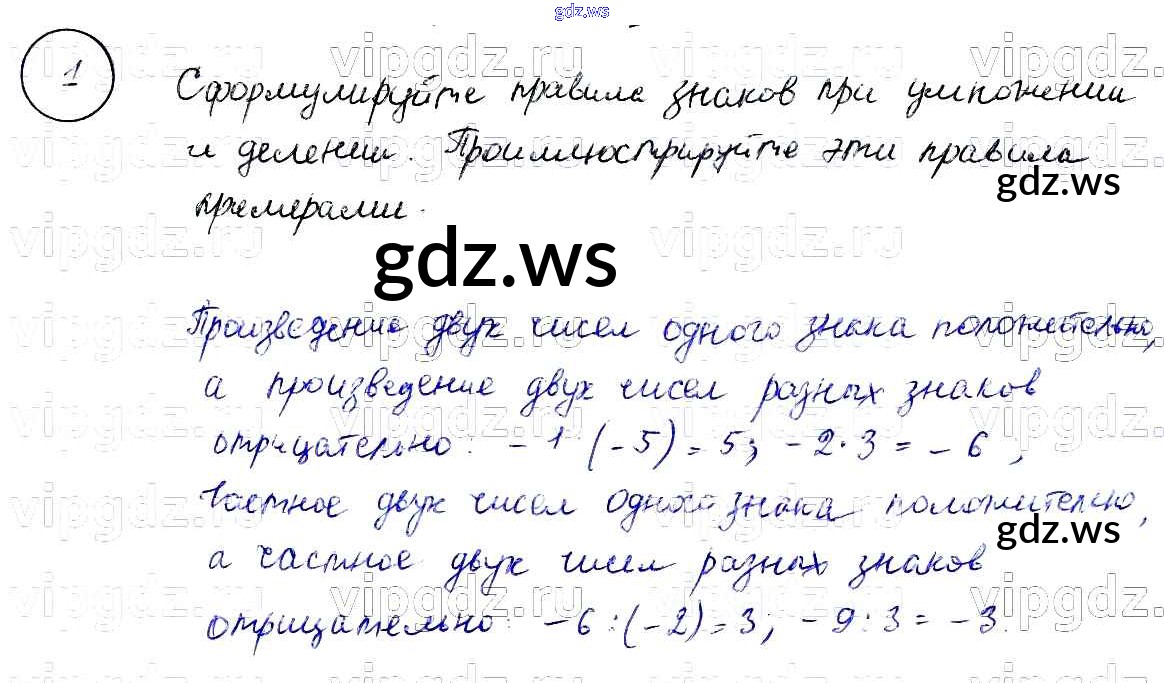 gdz.ws
1
Сформулируйте правила знаков при умножении
и делении. Проиллюстрируйте эти правила
gdz.ws
примерами.
gdz.ws
Произведение двух чисел одного знака положительно,
а произведение двух чисел разных знаков
отрицательно: -1 (-5) = 5; -2·3 = -6,
Частное двух чисел одного знака положительно,
gdz.ws
а частное двух чисел разных знаков
отрицательно: -6:(-2)=3; -9:3 = -3.
vipgdz.ru